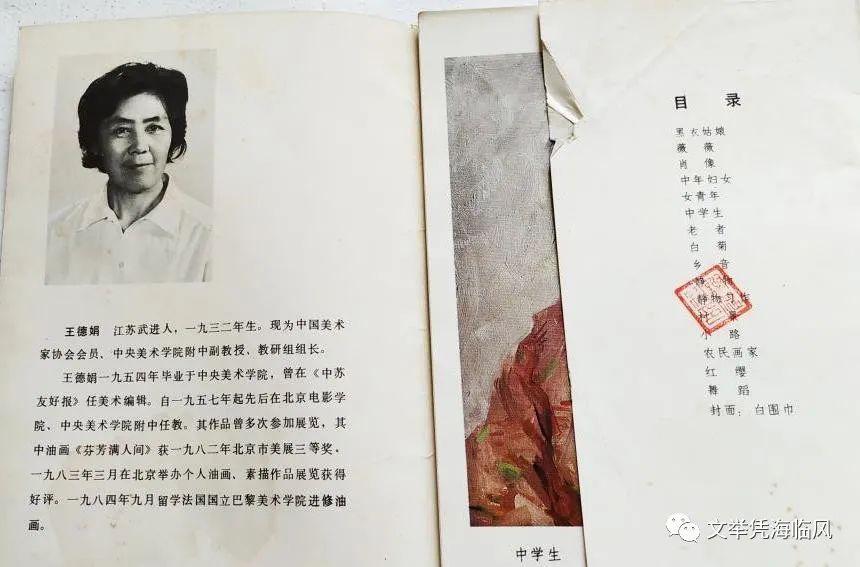 王德娟 江苏武进人，一九三二年生。现为中国美术
家协会会员、中央美术学院附中副教授、教研组组长。
王德娟一九五四年毕业于中央美术学院，曾在《中苏
友好报》任美术编辑。自一九五七年起先后在北京电影学
院、中央美术学院附中任教。其作品曾多次参加展览，其
中油画《芬芳满人间》获一九八二年北京市美展三等奖，
一九八三年三月在北京举办个人油画、素描作品展览获得
好评。一九八四年九月留学法国国立巴黎美术学院进修油
画。
中学生
目录
黑衣姑娘
薇薇
肖像
中年妇女
女青年
中学生
老者
白菊
乡音
静物
静物习作
小路
农民画家
红缨
舞蹈
封面：白围巾
文举凭海临风